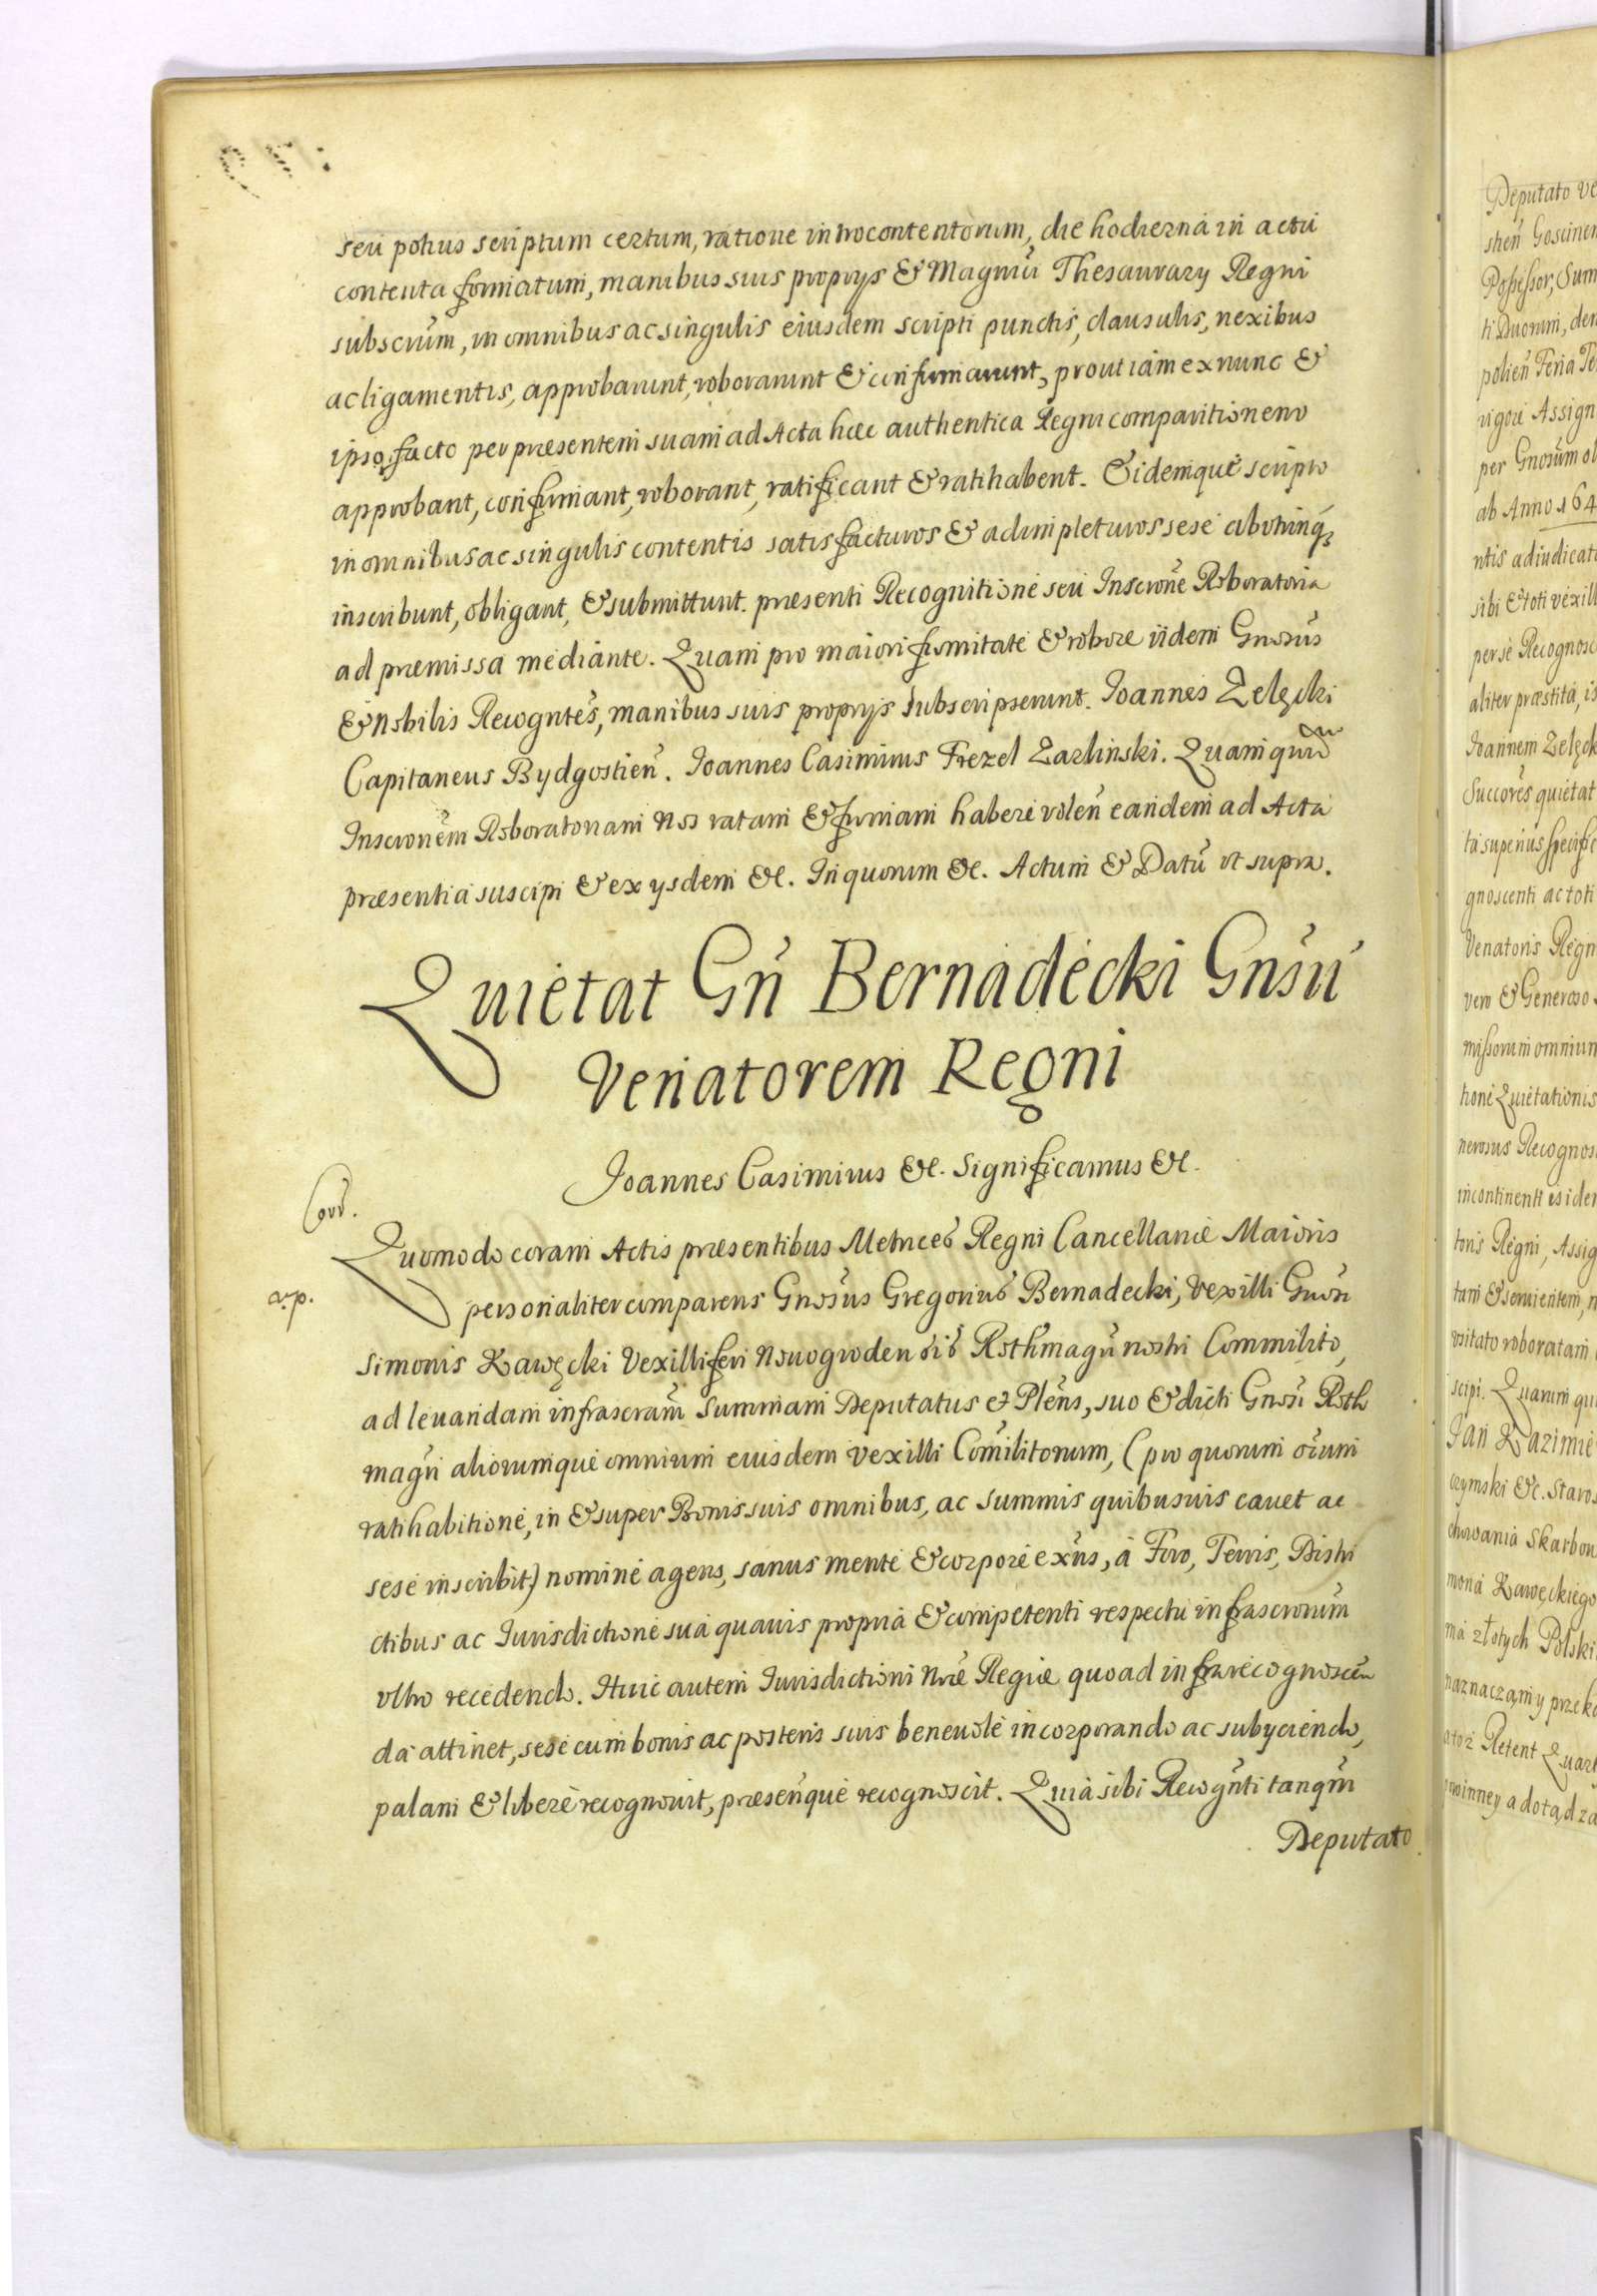 seu potius scriptum certum, ratione introcontentorum, die hodierna in actu
contenta formatum, manibus suis proprys & Magnifici Thesaurary Regni
subscrum, in omnibus ac singulis eiusdem scripti punctis, clausulis, nexibus
ac ligamentis, approbarunt, roborarunt & confirmarunt, prout iam ex nunc &
ipso facto per præsentem suam ad Acta hæc authentica Regni comparitionem
approbant, confirmant, roborant, ratificant & ratihabent. Eidemque scripto
in omnibus ac singulis contentis satisfacturos & adimpleturos sese
inscribunt, obligant, & submittunt. præsenti Recognitione seu Inscrone Roboratoria
ad præmissa mediante. Quam pro maiori firmitate & robore iidem Gnosus
& Nobilis Recogntes, manibus suis proprys subscripserunt. Joannes Zelęcki
Capitaneus Bydgostien. Joannes Casimirus Frezel Zarlinski. Quam quidem
Inscronem Roboratoriam Nos ratam & firmam habere volen eandem ad Acta
præsentia suscipi & ex ysdem &c. In quorum &c. Actum & Datū vt supra.
Quietat Gn Bernadecki Gnsu
Venatorem Regni
Joannes Casimirus &c. Significamus &c.
Cord.
Quomodo coram Actis præsentibus Metrices Regni Cancellariæ Maioris
a.p.
personaliter comparens Gnosus Gregorius Bernadecki, Vexilli Gnosi
Simonis Kawęcki Vexilliferi Nouogrodensis Rothmagri nostri Commilito,
ad leuandam infrascram Summam Deputatus & Plens, suo & dicti Gnosi Roth
magri aliorumque omnium eiusdem vexilli Comilitonum, (pro quorum oium
ratihabitione, in & super Bonis suis omnibus, ac summis quibusuis cauet ac
sese inscribit) nomine agens, sanus mente & corpore exns, à Foro, Terris, Distri
ctibus ac Iurisdictione sua quauis propria & competenti respectu infrascrorum
vltro recedendo. Huic autem Iurisdictioni Nræ Regiæ quoad infrarecognoscen
da attinet, sese cum bonis ac posteris suis beneuole incorporando ac subyciendo,
palam & libere recognouit, præsenque recognoscit. Quia sibi Recognti tanqm
Deputato
Deputato
Possessor, Sum
ti Duorum, den
vigore Assign
ab Anno 164
ntis adiudicat
sibi & toti vexill
per se Recognosc
aliter præstita, is
Joannem Zelęck
Succores quietat
ta superius specific
gnoscenti ac toti
Venatoris Regn
vero & Generoso
missorum omnium
tione Quietationis
nerosus Recognos
incontinenti
toris Regni, Assig
tam & seruientem,
roboratam
scipi. Quarum qui
Jan Kazimie
czymski &c. Staros
chowania Skarbon
mona Kawęckiego
ma złotych Polski
naznaczamy
Retent Quart
winney a dotąd za